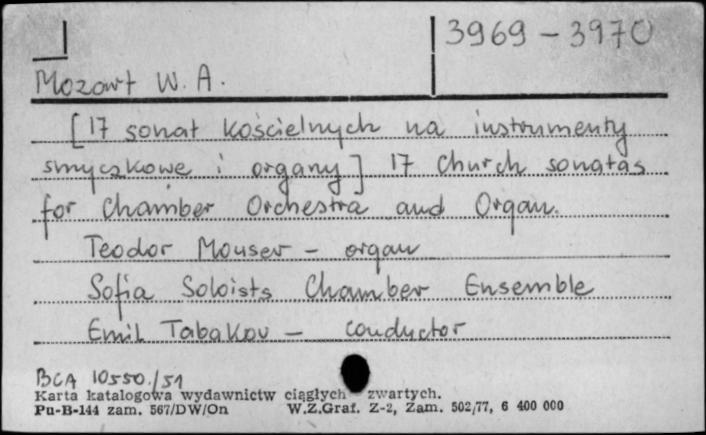 3969 - 3970
Mozart W. A.
[17 sonat kościelnych na instrumenty
smyczkowe i organy] 17 Church sonatas
for Chamber Orchestra and Organ.
Teodor Mouser - organ
Sofia Soloists Chamber Ensemble
Emil Tabakov - conductor
BCA 10550/51
Karta katalogowa wydawnictw ciągłych zwartych.
Pu-B-144 zam. 567/DW/On W.Z.Graf. Z-2, Zam. 502/77, 6 400 000